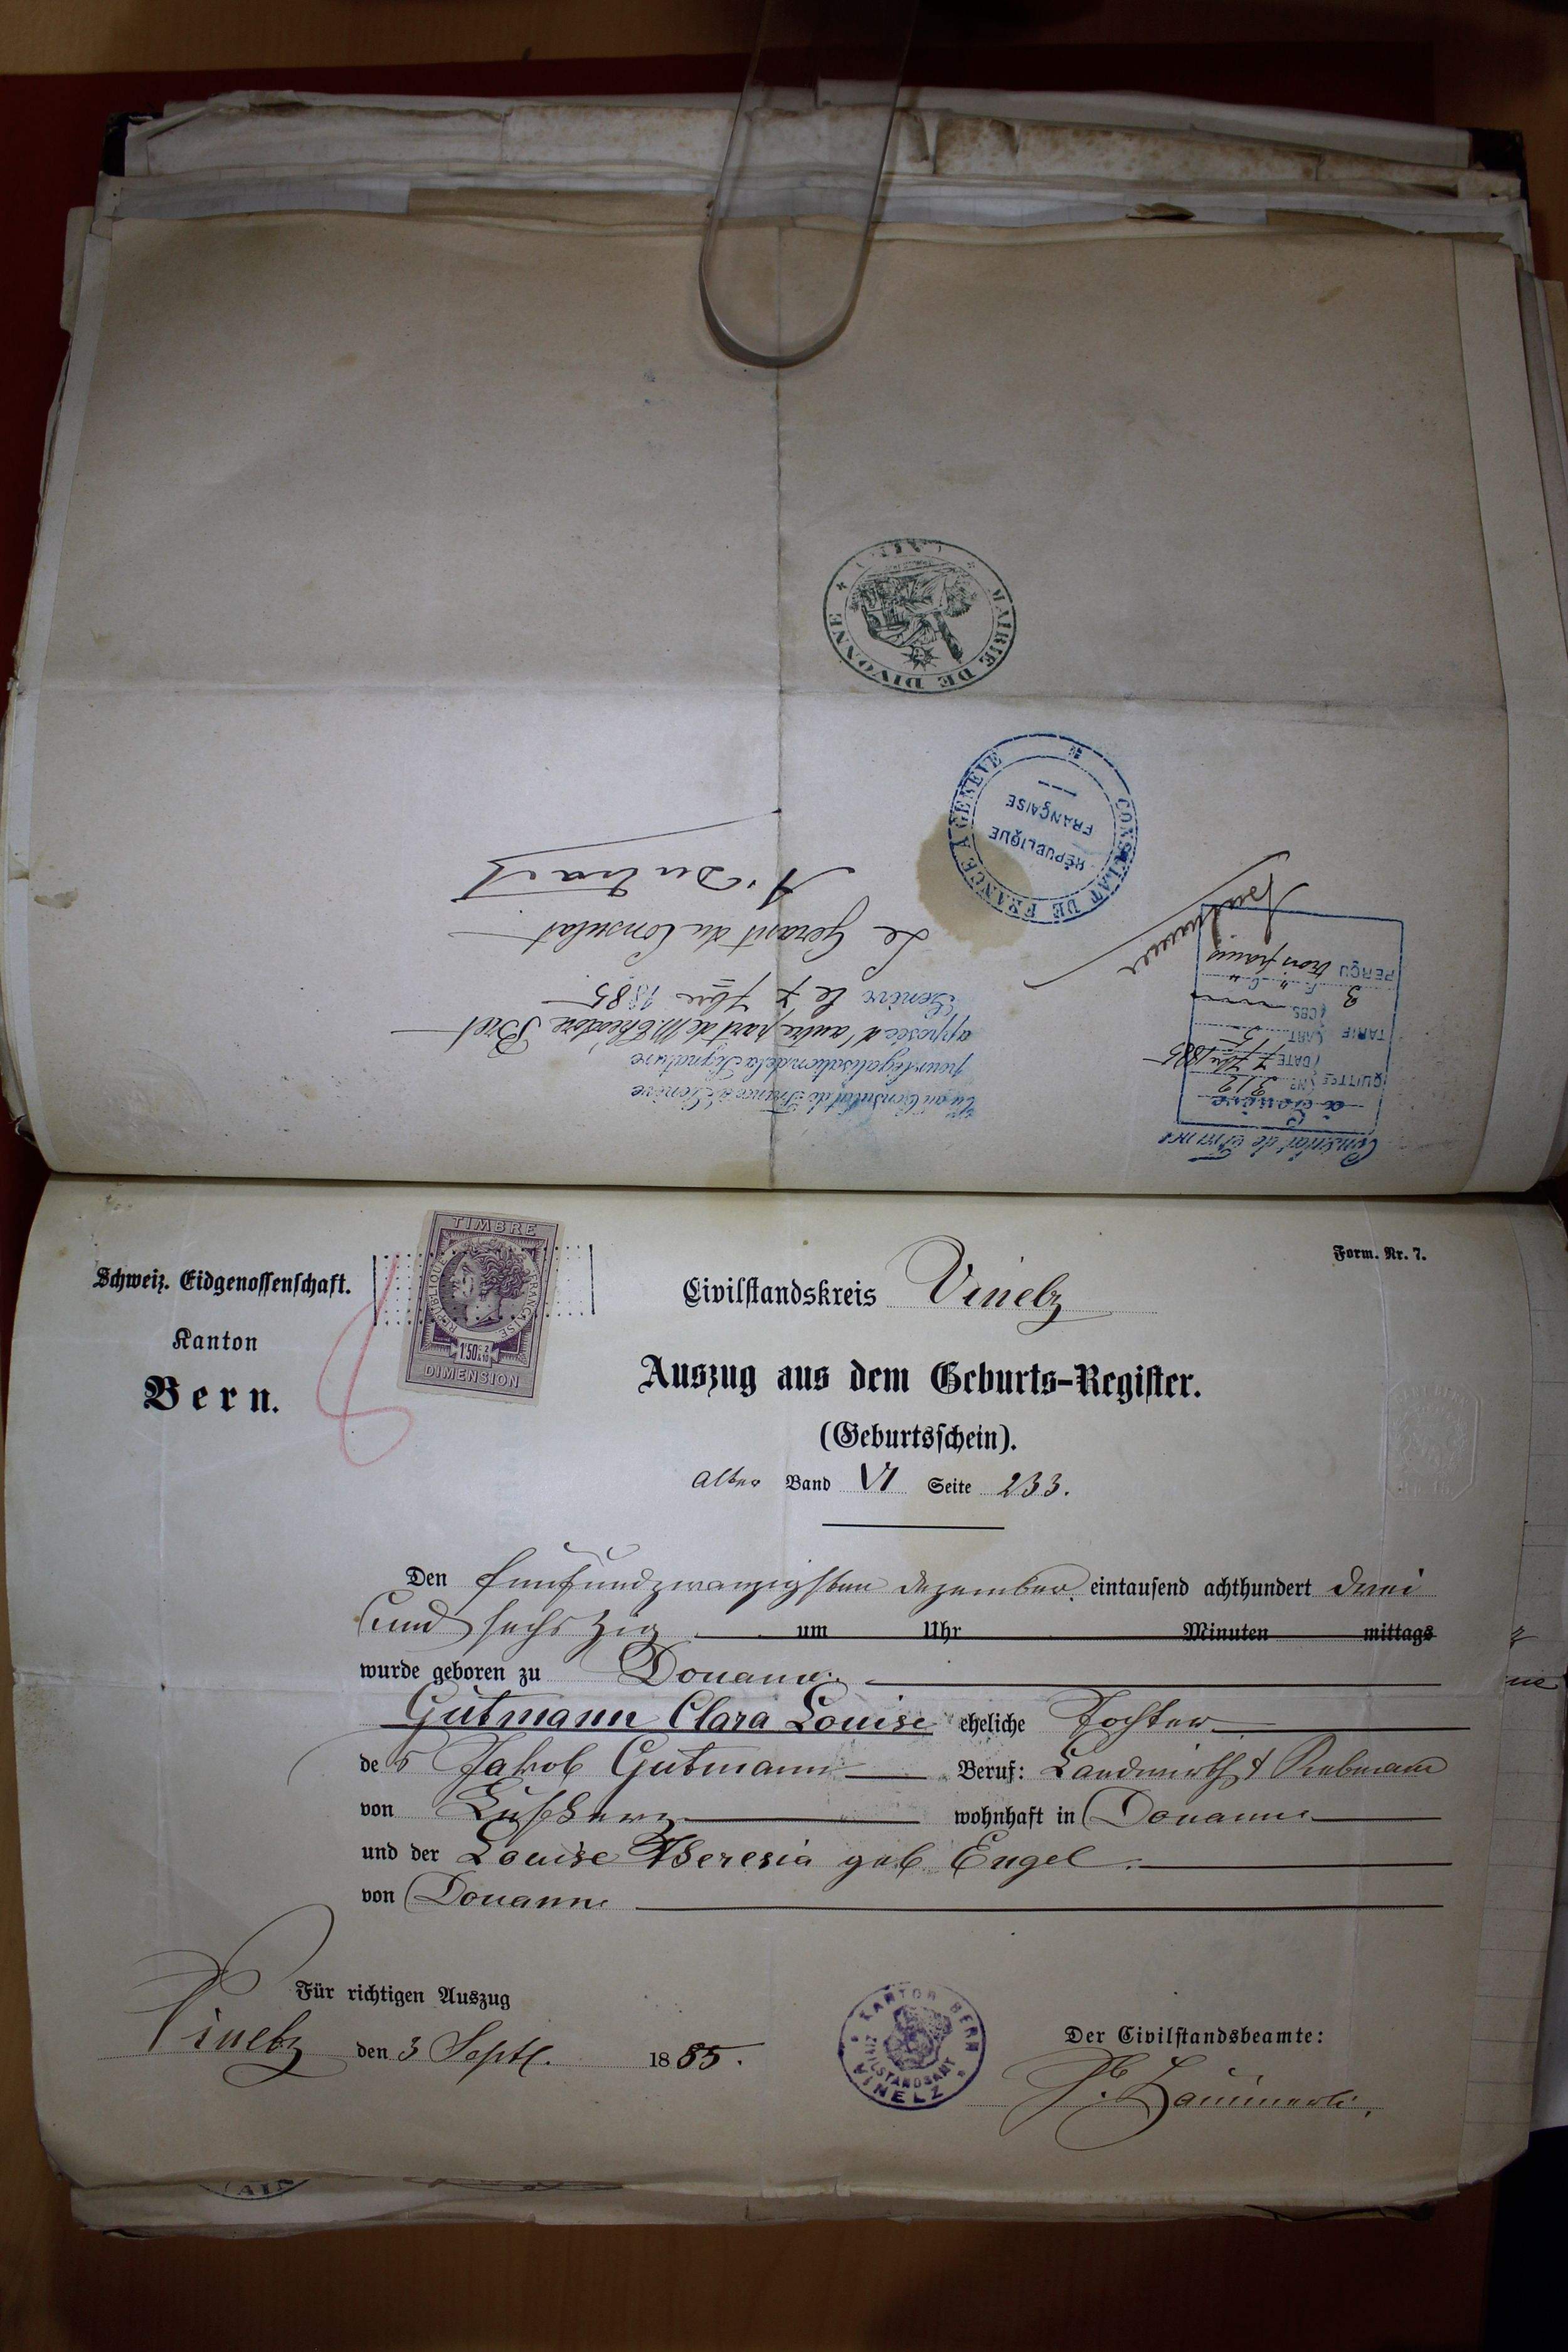 MAIRIE DE DIVONNE
(AIN)
CONSULAT DE FRANCE A GENÈVE
RÉPUBLIQUE
FRANÇAISE
Consulat de France
à Genève
QUITTCE No 312
DATE 7 7bre 1885
TARIF ART 75
CES
3 F. " C. "
PERÇU trois francs
Vu au Consulat de France à Genève
pour légalisation de la Signature
apposée d'autre part de M. Théodore Bret
Genève le 7 7bre 1885
Le Gérant du Consulat
Form. Nr. 7.
TIMBRE
RÉPUBLIQUE FRANÇAISE
1F50c 2/10
DIMENSION
Schweiz. Eidgenossenschaft.
Kanton
Bern.
Civilstandskreis Vinelz
Auszug aus dem Geburts-Register.
(Geburtsschein).
alter Band VI Seite 233.
Den fünfundzwanzigsten Dezember eintausend achthundert drei
und sechszig um Uhr Minuten mittags
wurde geboren zu Douanne
Gutmann Clara Louise eheliche Tochter
des Jakob Gutmann Beruf: Landwirth & Rebmann
von wohnhaft in Douanne
und der Louise Theresia geb Engel.
von Douanne
Für richtigen Auszug
Vinelz den 3 Septb. 1885.
KANTON BERN
CIVILSTANDSAMT
VINELZ
Der Civilstandsbeamte: